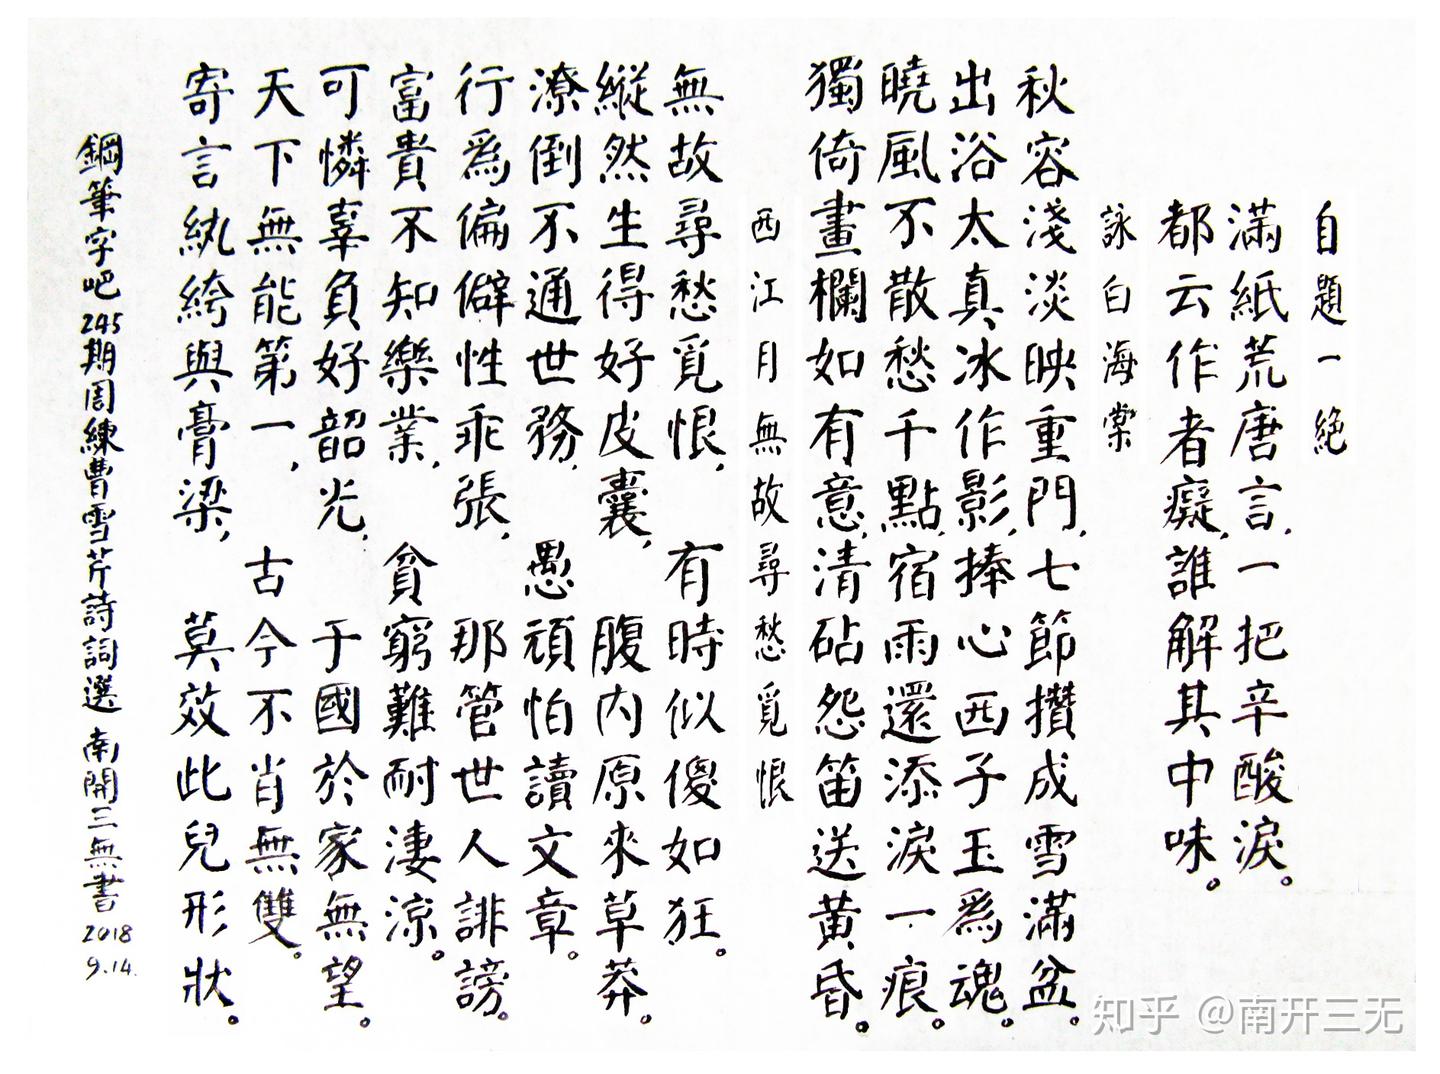 自題一絶
滿紙荒唐言,一把辛酸淚。
都云作者癡,誰解其中味。
詠白海棠
秋容淺淡映重門,七節攢成雪滿盆。
出浴太真冰作影,捧心西子玉爲魂。
曉風不散愁千點,宿雨還添淚一痕。
獨倚畫欄如有意,清砧怨笛送黃昏。
西江月無故尋愁覓恨
無故尋愁覓恨,有時似傻如狂。
縱然生得好皮囊,腹內原來草莽。
潦倒不通世務,愚頑怕讀文章。
行爲偏僻性乖張,那管世人誹謗。
富貴不知樂業,貧窮難耐淒涼。
可憐辜負好韶光,于國於家無望。
天下無能第一,古今不肖無雙。
寄言紈絝與膏粱,莫效此兒形狀。
鋼筆字吧245期周練曹雪芹詩詞選 南開三無書 2018 9.14.
知乎 @南开三无